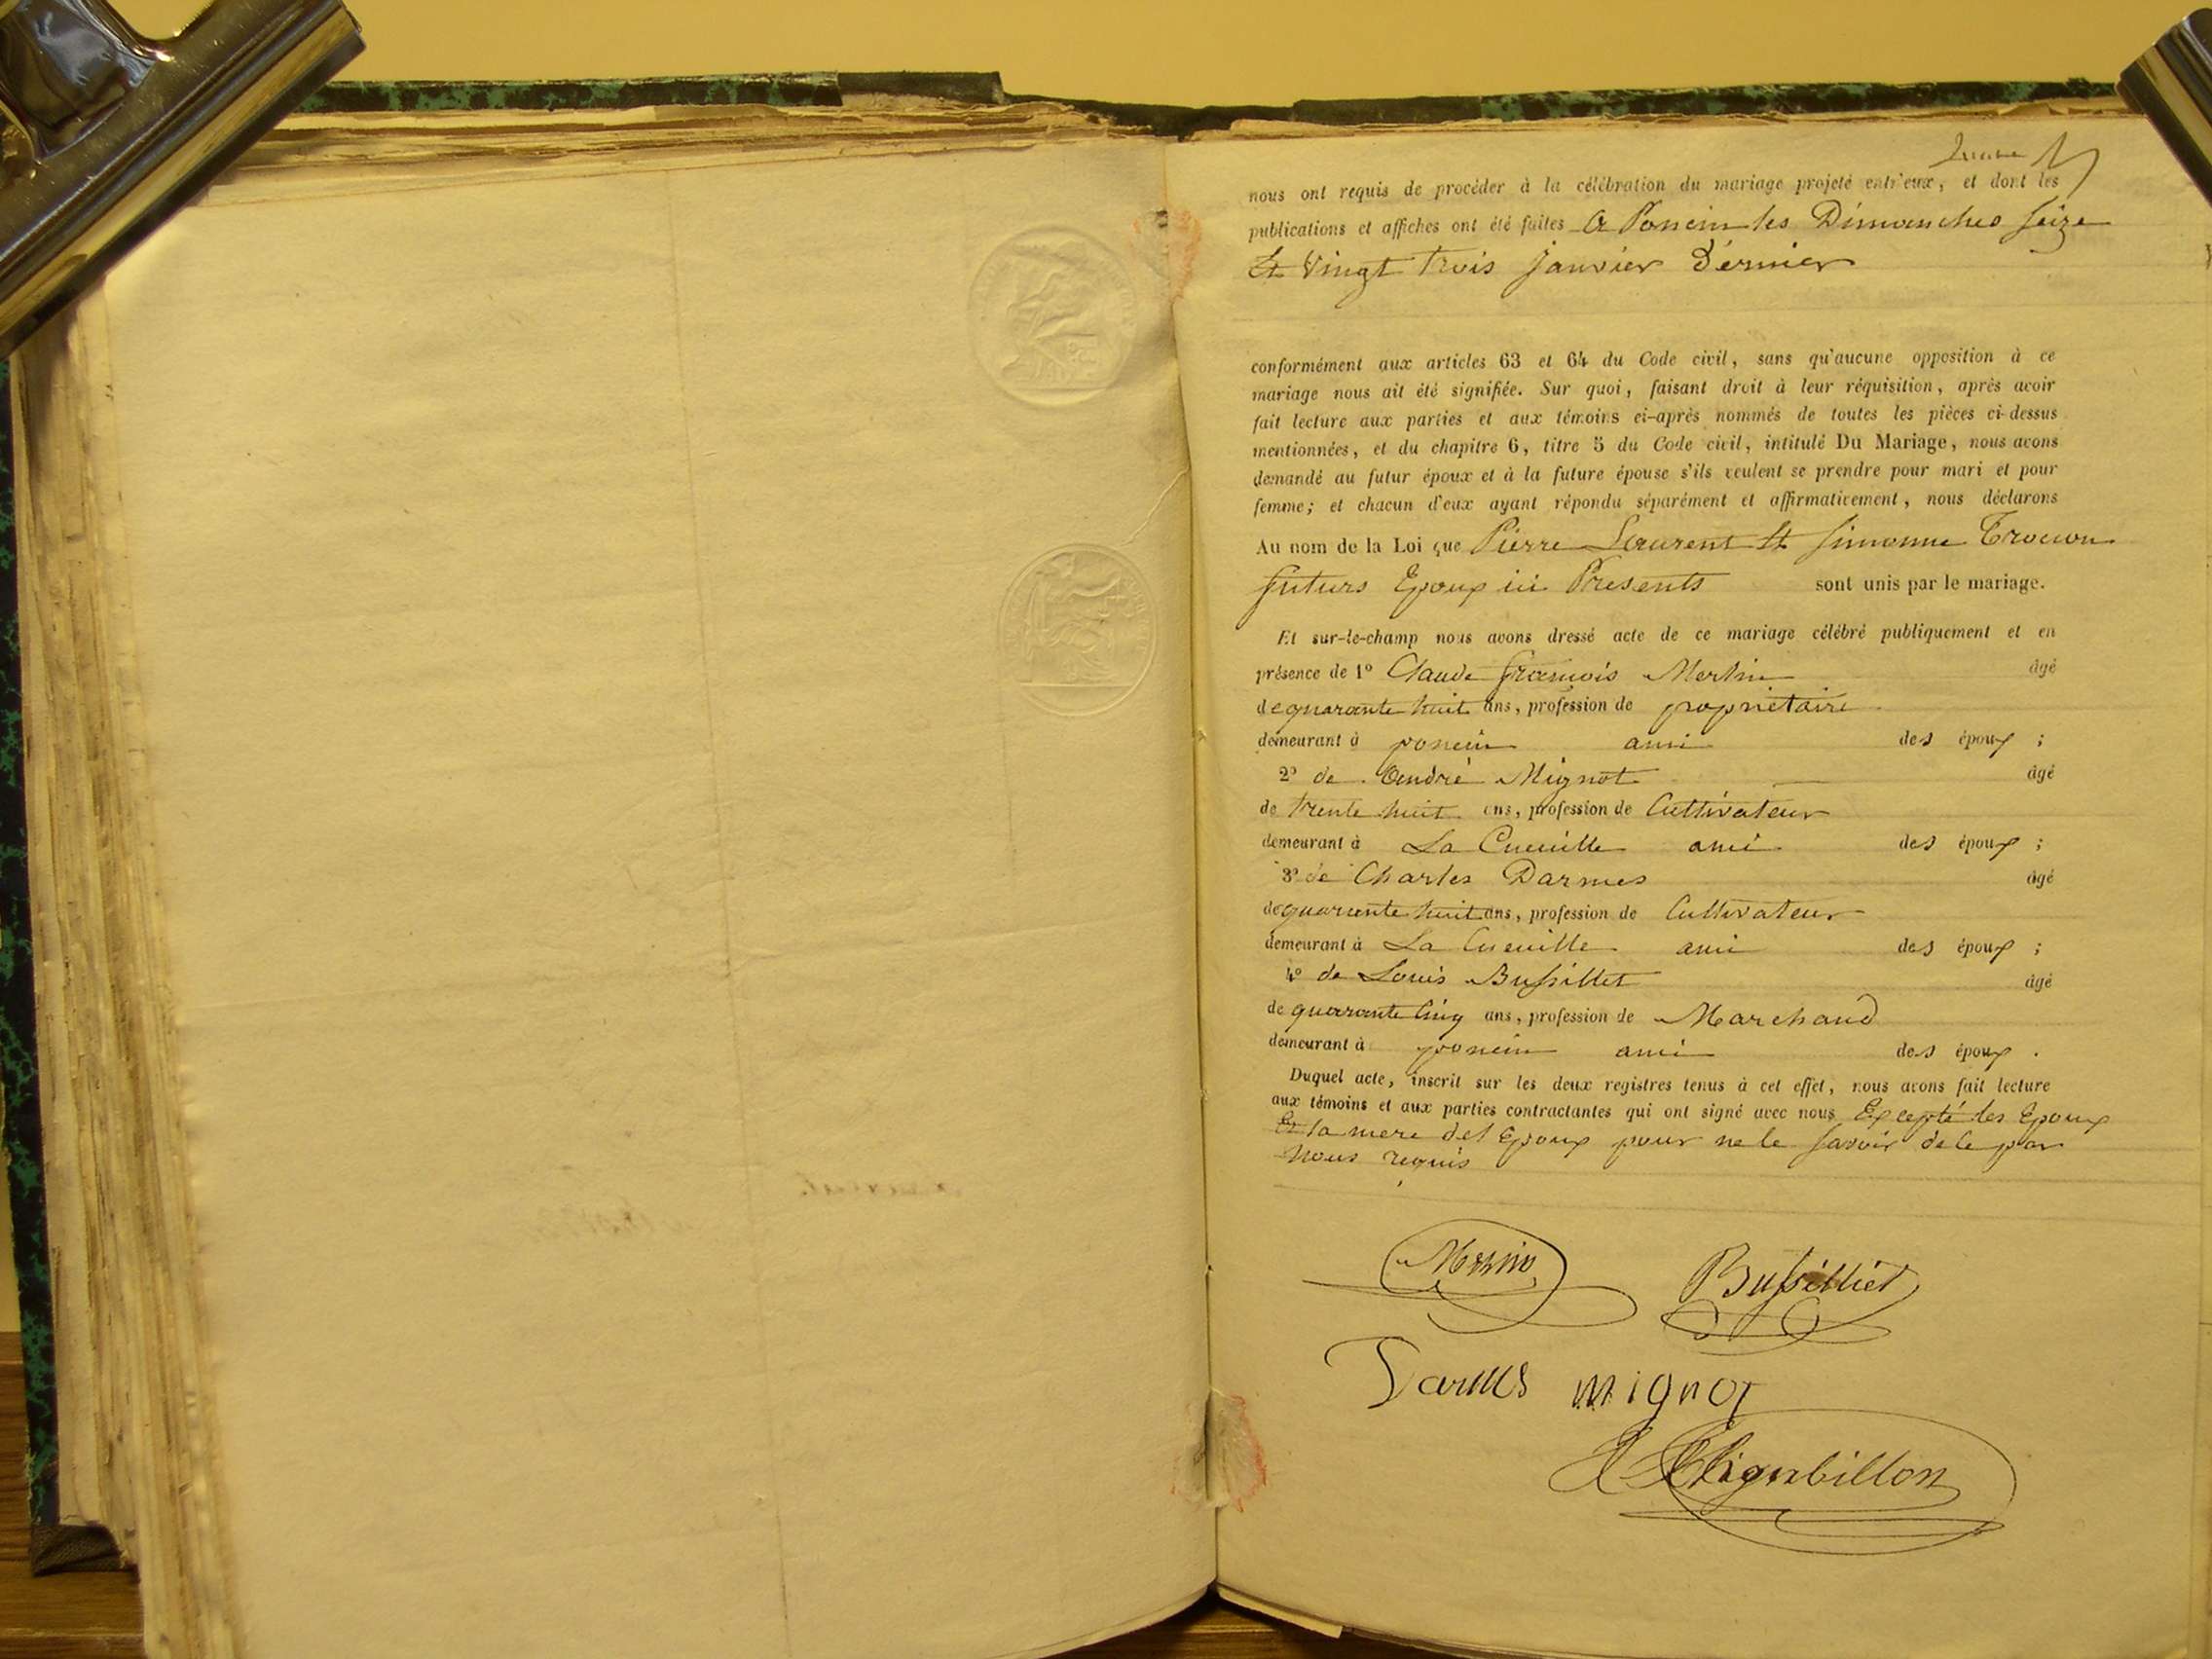 nous ont requis de procéder à la célébration du mariage projeté entr'eux, et dont les
publications et affiches ont été faites a Poncin les Dimanches seize
Et vingt trois janvier dérnier
conformément aux articles 63 et 64 du Code civil, sans qu'aucune opposition à ce
mariage nous ait été signifiée. Sur quoi, faisant droit à leur réquisition, après avoir
fait lecture aux parties et aux témoins ci-après nommés de toutes les pièces ci-dessus
mentionnées, et du chapitre 6, titre 5 du Code civil, intitulé Du Mariage, nous avons
demandé au futur époux et à la future épouse s'ils veulent se prendre pour mari et pour
femme; et chacun d'eux ayant répondu séparément et affirmativement, nous déclarons
Au nom de la Loi que Pierre Laurent Et Simonne
futurs Epoux ici Présents sont unis par le mariage.
Et sur-le-champ nous avons dressé acte de ce mariage célébré publiquement et en
présence de 1º Claude françois âgé
de quarante huit ans, profession de propriétaire
demeurant à poncin ami des époux ;
2º de André Mignot âgé
de trente huit ans, profession de Cultivateur
demeurant à La Cueuille ami des époux ;
3º de Charles Darmes âgé
de quarante huit ans, profession de Cultivateur
demeurant à La Cueuille ami des époux ;
4º de Louis Bussillet âgé
de quarante cinq ans, profession de Marchand
demeurant à poncin ami des époux .
Duquel acte, inscrit sur les deux registres tenus à cet effet, nous avons fait lecture
aux témoins et aux parties contractantes qui ont signé avec nous Excepté les Epoux
Et la mere del Epoux pour ne le savoir de ce par
nous requis
Bussilliet
Darmes mignot